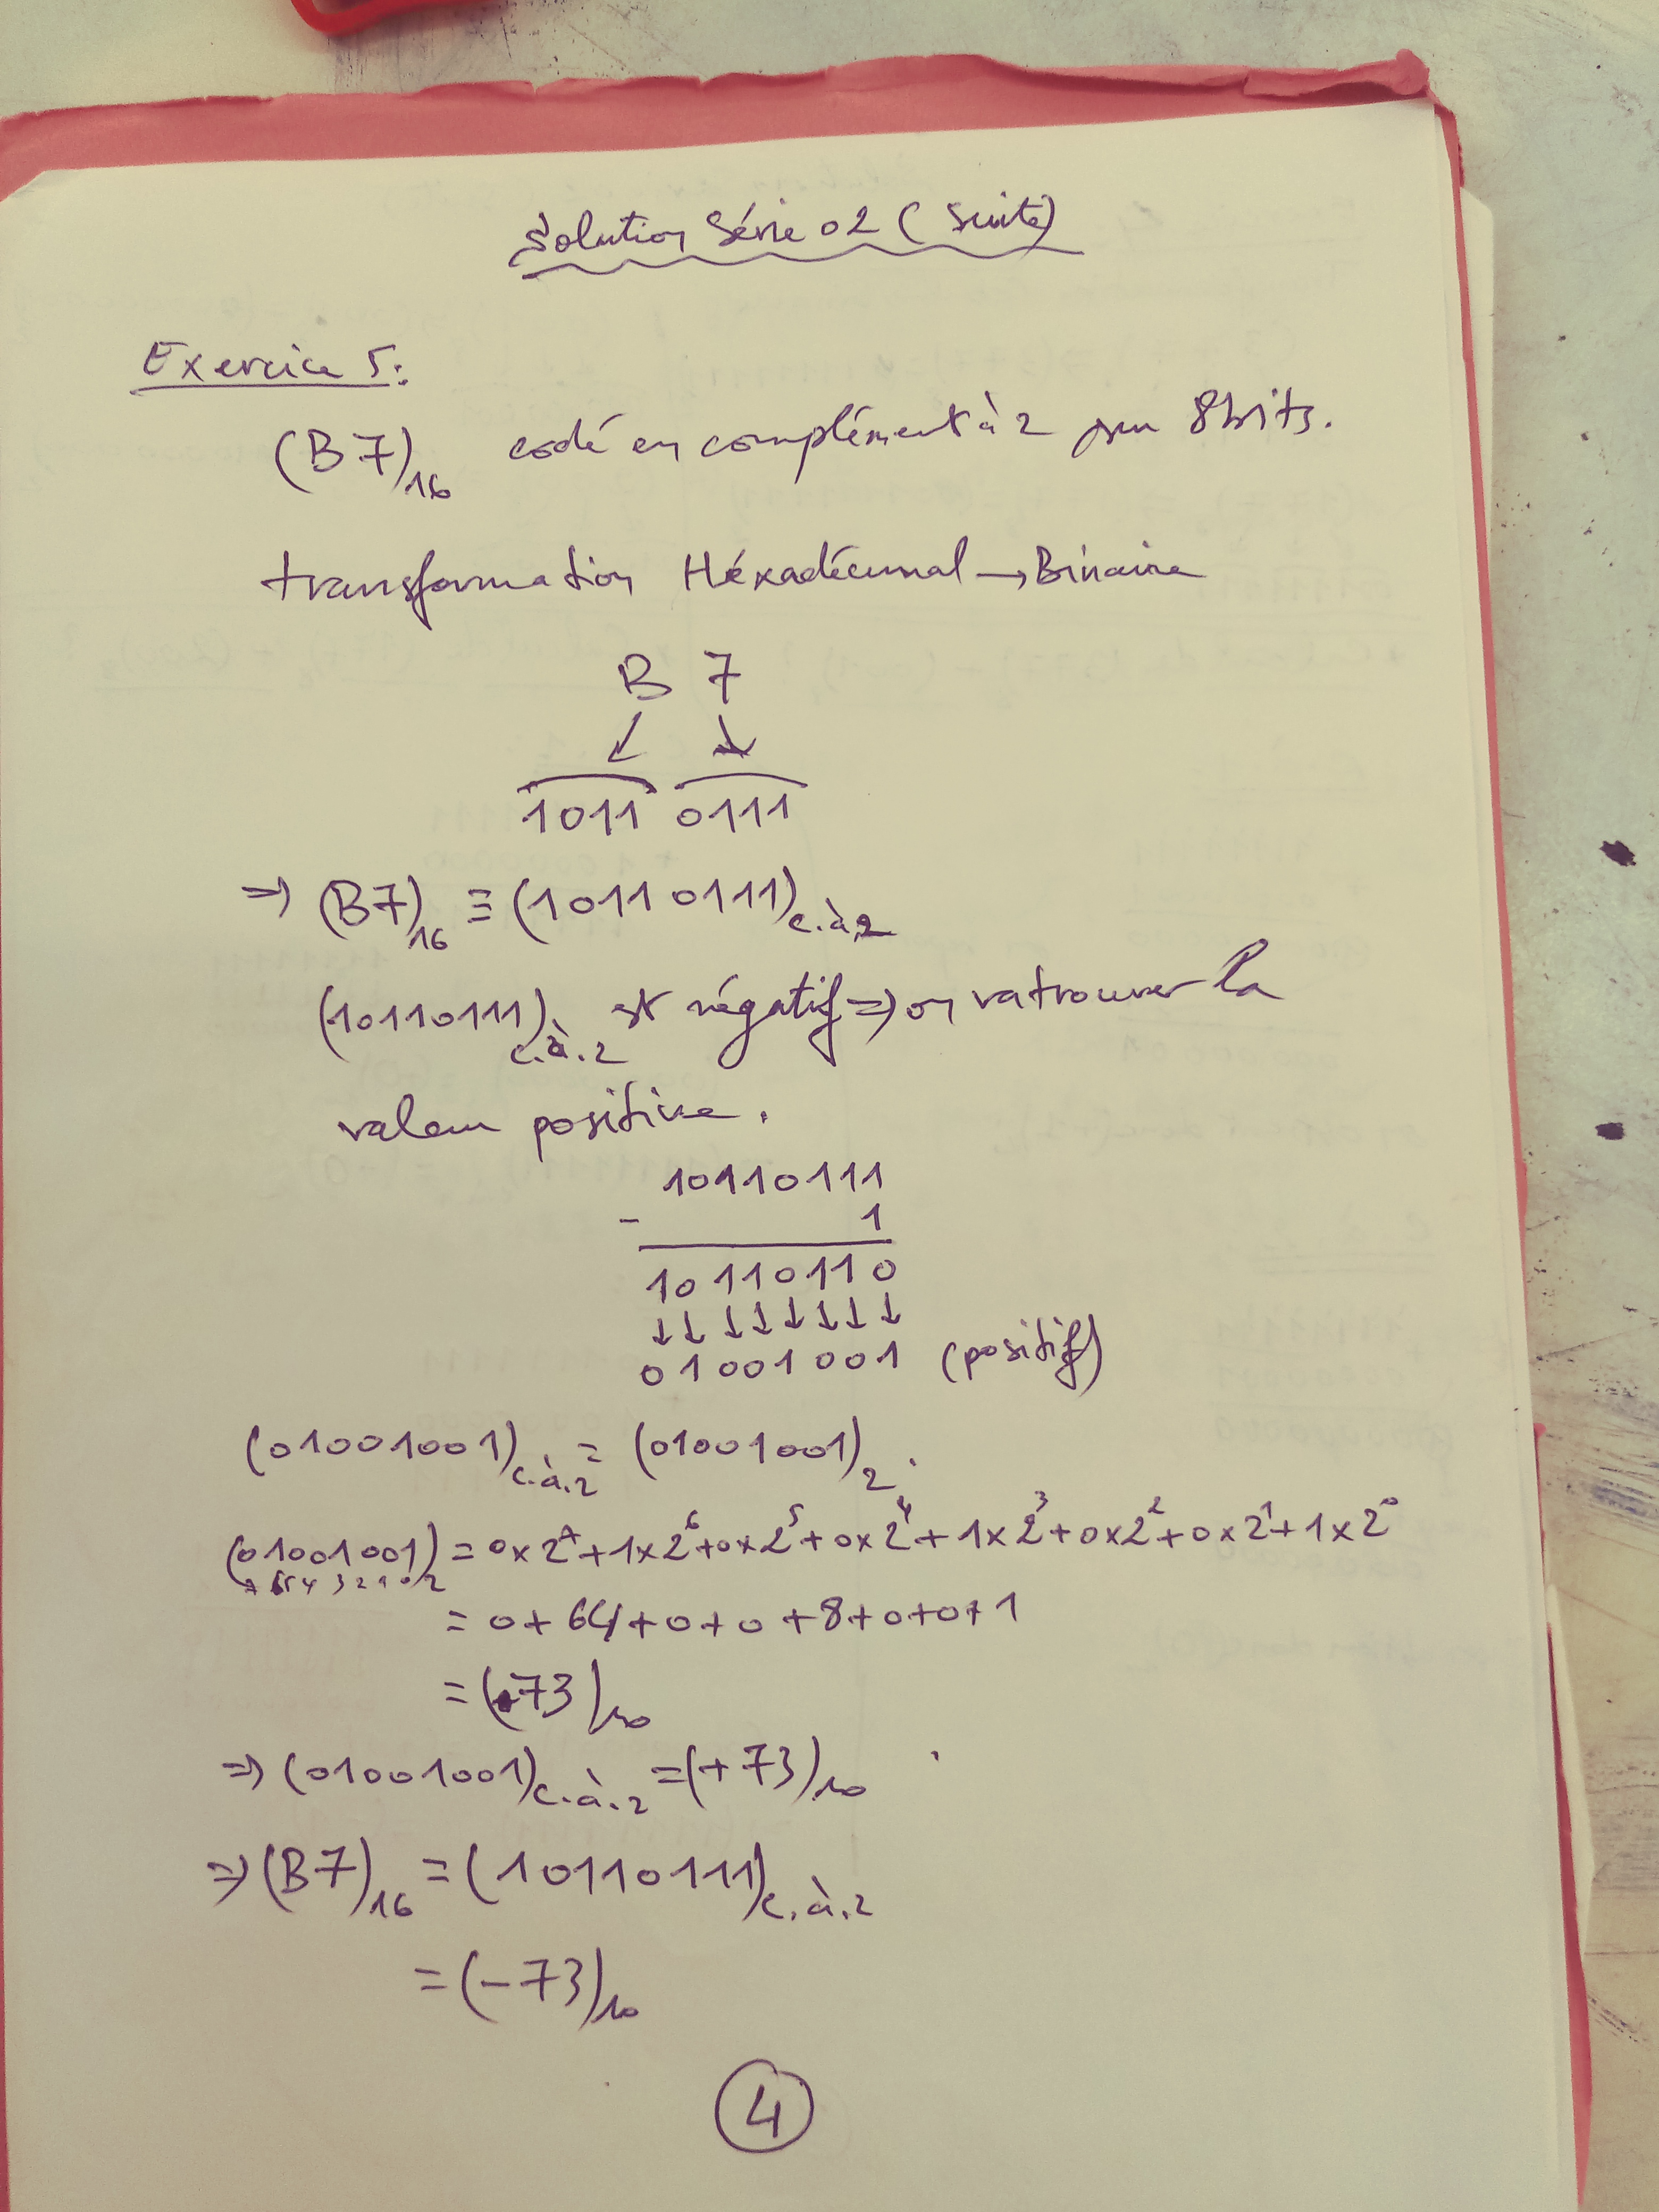 Solution Série 02 (suite)
Exercice 5:
(B7)₁₆ codé en complément à 2 sur 8 bits.
transformation Héxadécimal → Binaire
B 7
1011 0111
⇒ (B7)₁₆ ≡ (10110111)c.à.2
(10110111)c.à.2 est négatif ⇒ on va trouver la
valeur positive.
10110111
- 1
10110110
↓↓↓↓↓↓↓↓
01001001 (positif)
(01001001)c.à.2 = (01001001)₂.
(01001001)₂ = 0×2⁷+1×2⁶+0×2⁵+0×2⁴+1×2³+0×2²+0×2¹+1×2⁰
7 6 5 4 3 2 1 0
= 0+64+0+0+8+0+0+1
= (73)₁₀
⇒ (01001001)c.à.2 = (+73)₁₀
⇒ (B7)₁₆ = (10110111)c.à.2
= (-73)₁₀
4